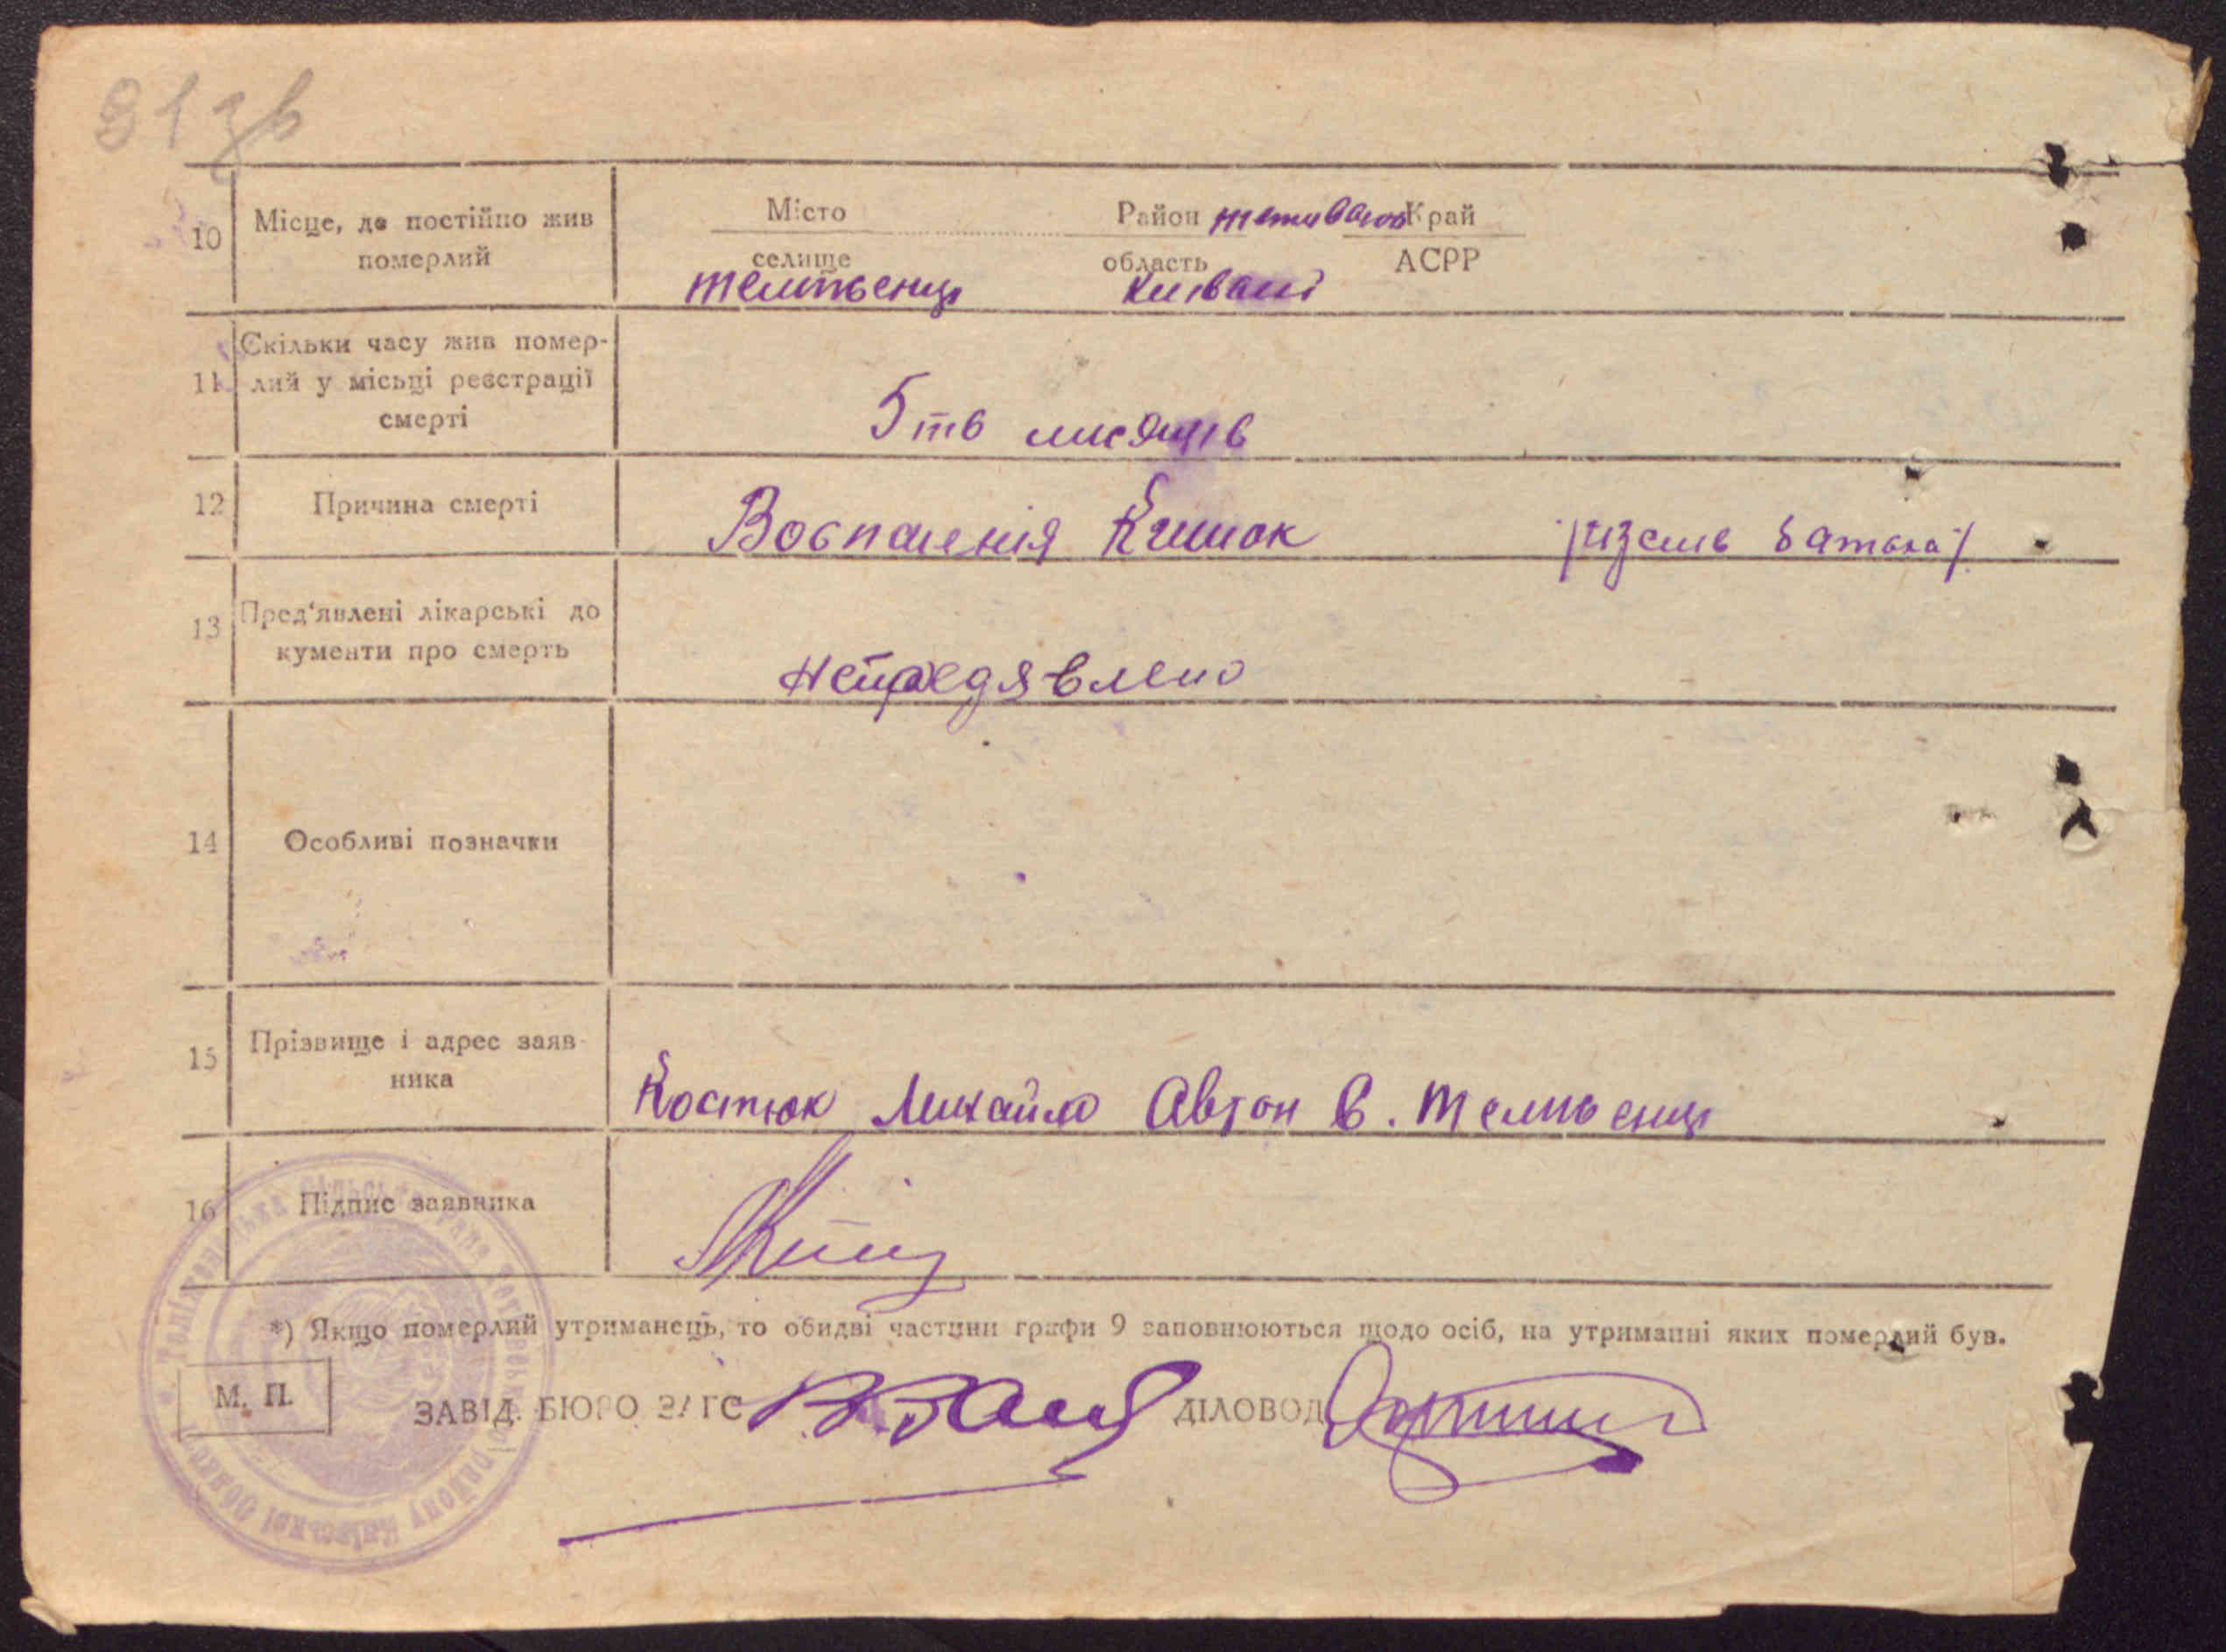 81 зв
10 Місце, де постійно жив померлий
Місто Район Край
селище область АСРР
11 Скільки часу жив помер-
лий у місьці реєстрації
смерті
5ть мисяців
12 Причина смерті
Воспаления Кишок /изслів батька/
13 Пред'явлені лікарські до
кументи про смерть
непредявлено
14 Особливі позначки
15 Прізвище і адрес заяв-
ника
Костюк Михайло Автон
16 Підпис заявника
*) Якщо померлий утриманець, то обидві частини графи 9 заповнюються щодо осіб, на утриманні яких померлий був.
М. П.
ЗАВІД. БЮРО ЗАГС ДІЛОВОД
району Київської Област